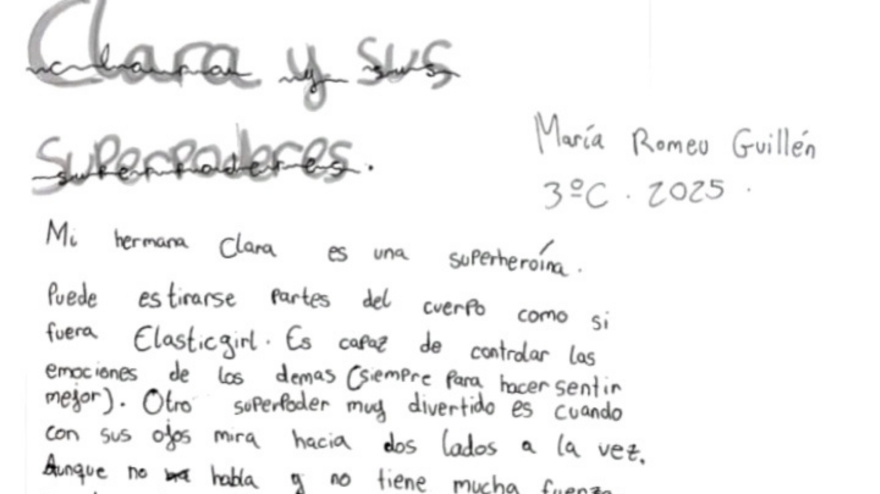 Clara y sus
superpoderes.
María Romeu Guillén
3ºC · 2025 ·
Mi hermana Clara es una superheroína.
Puede estirarse partes del cuerpo como si
fuera Elasticgirl. Es capaz de controlar las
emociones de los demas (siempre para hacer sentir
mejor). Otro superpoder muy divertido es cuando
con sus ojos mira hacia dos lados a la vez.
Aunque no habla y no tiene mucha fuerza